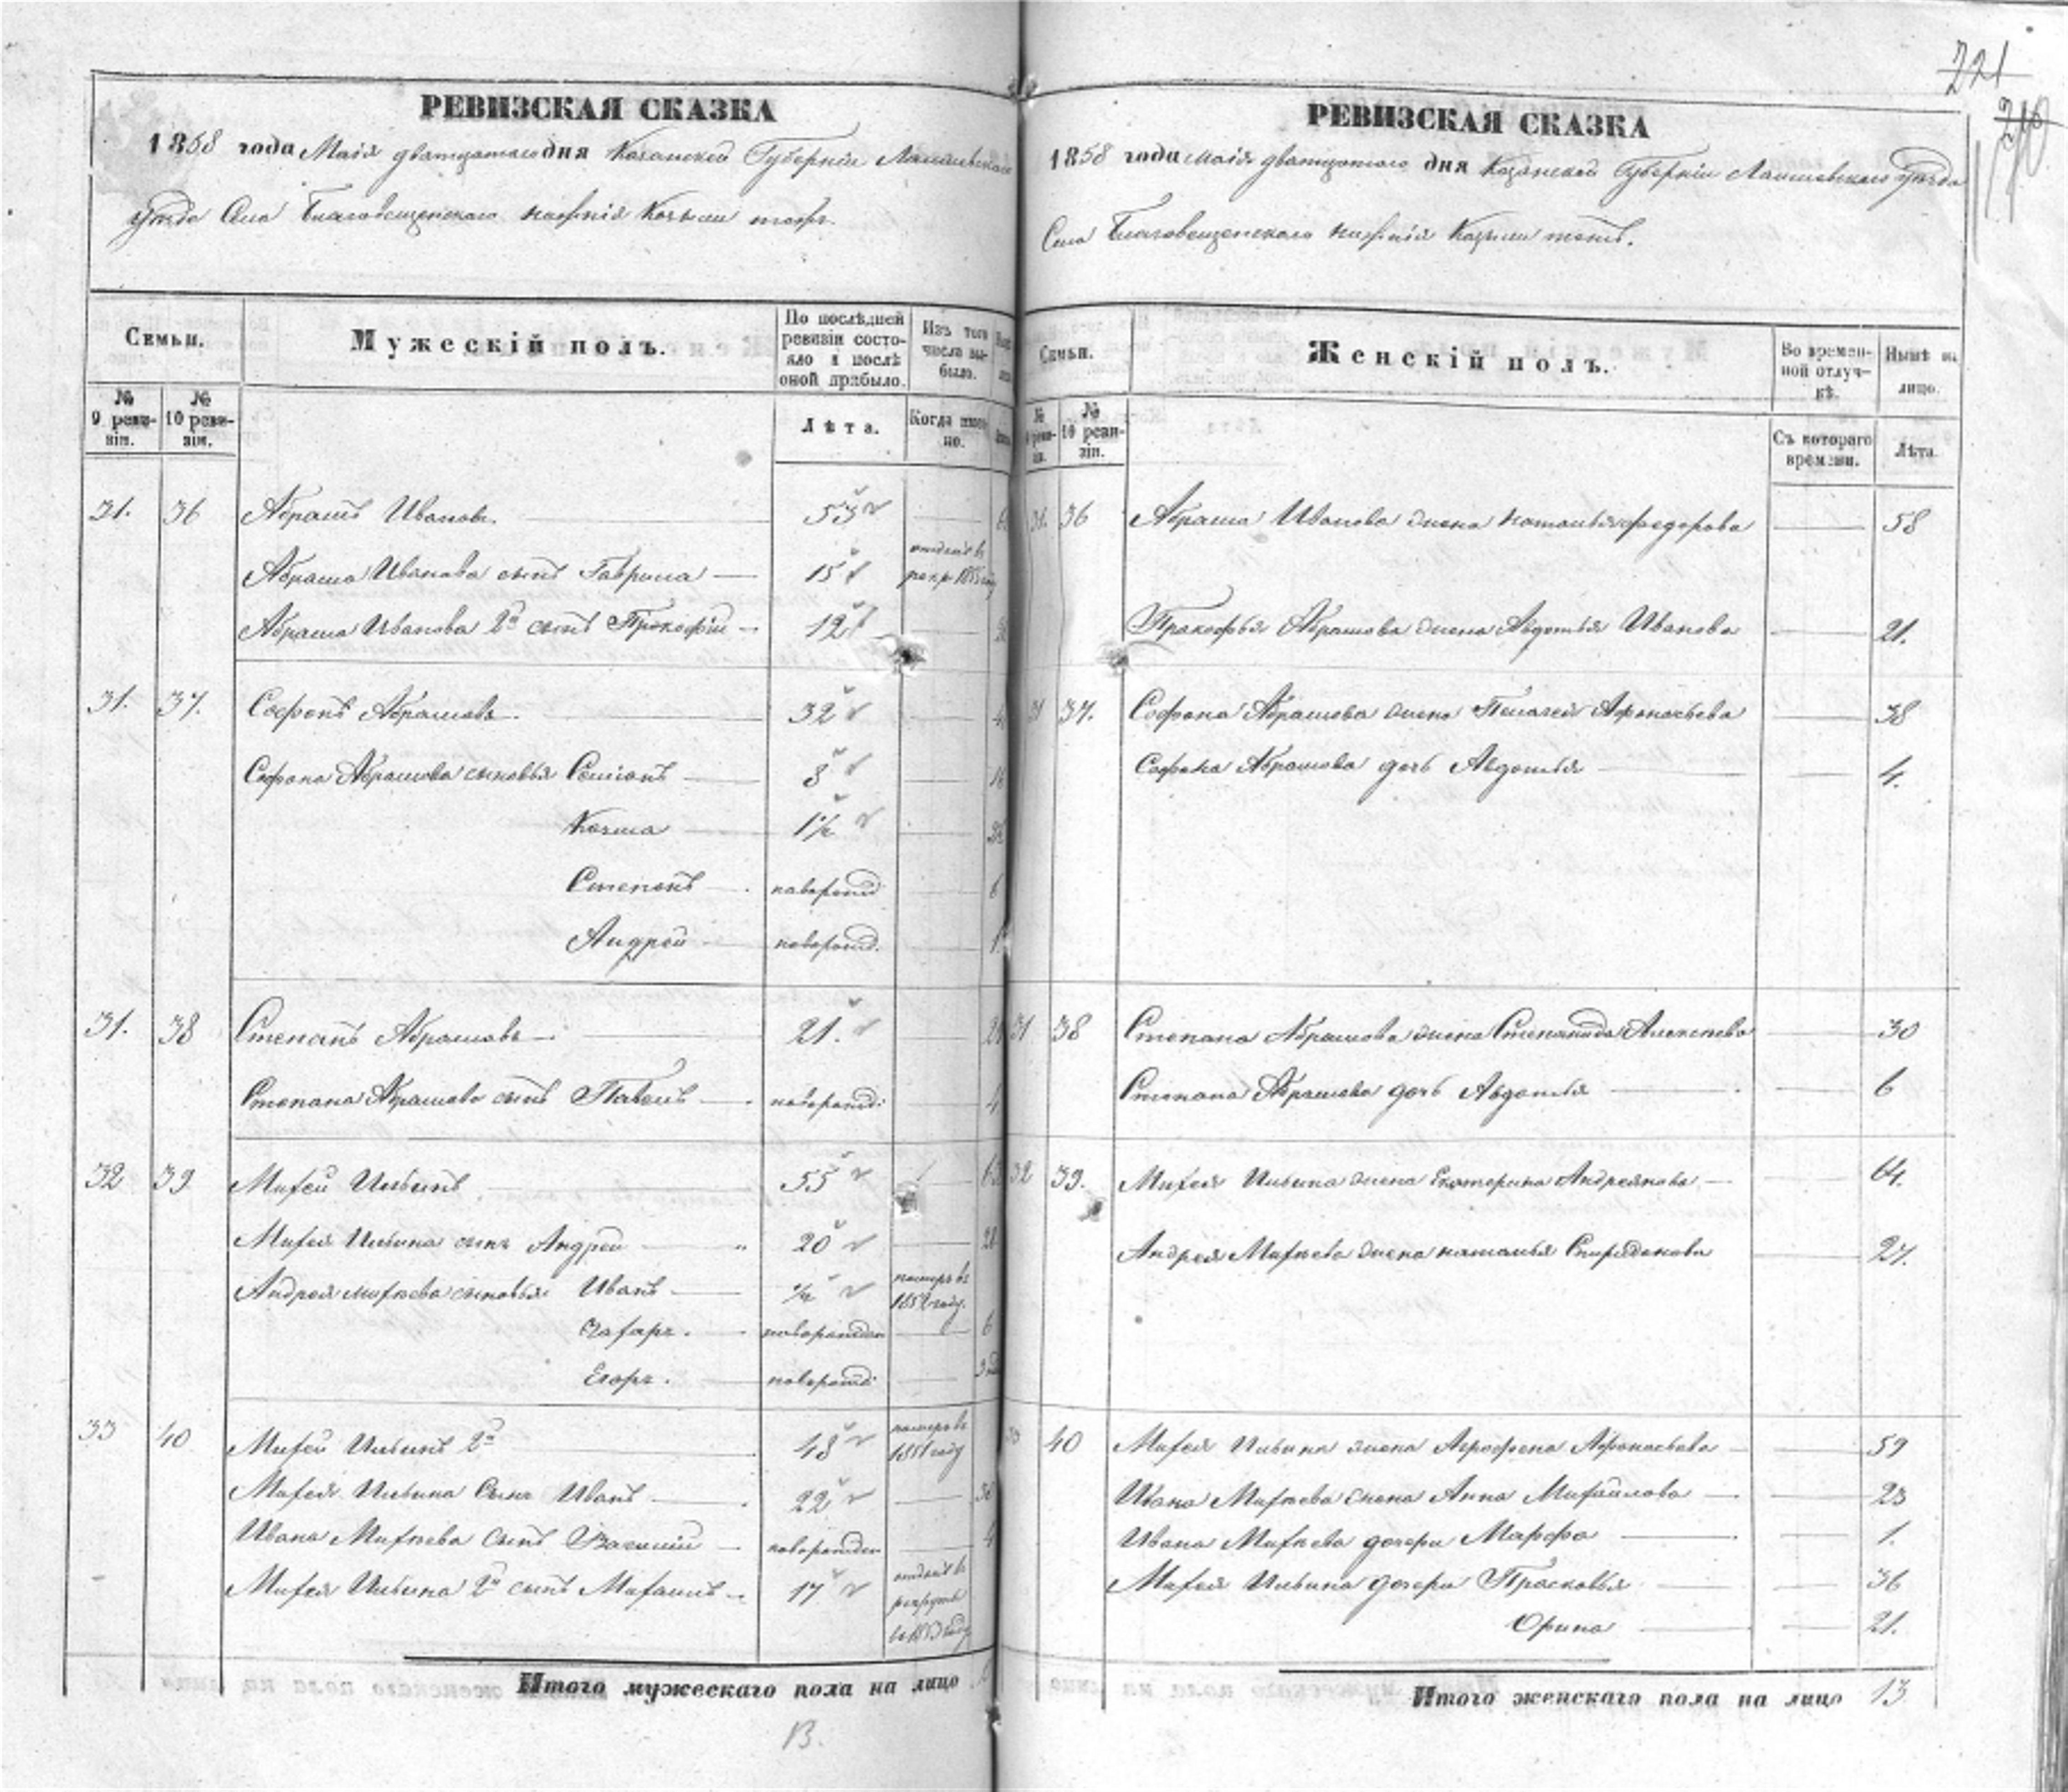 221
210
РЕВИЗСКАЯ СКАЗКА
1858 года Маія дватцатаго дня Казанской Губерніи Лаишевскаго
уезда Села Благовещенскаго Козыли тожъ.
Семьи.
Мужескій полъ.
По послѣдней ревизіи состояло и послѣ оной прибыло.
Изъ того числа выбыло.
№ 9 ревизіи.
№ 10 ревизіи.
Лѣта.
Когда именно.
31. 36 Абрамъ Ивановъ. 53
Абрама Иванова сынъ Гаврила 15 отданъ в рекр.
Абрама Иванова 2й сынъ Прокофій 12
31. 37. Софронъ Абрамовъ. 32
Софрона Абрамова сыновья Семіонъ 8
Козма 1½
Степанъ новорожд
Андрей новорожд.
31. 38 Степанъ Абрамовъ 21.
Степана Абрамова сынъ Павелъ новорожд:
32 39 Михей Ильинъ 55
Михея Ильина сынъ Андрей 20
Андрея Михеева сыновья Иванъ померъ въ 1852 году.
Захаръ. новорожден 6
Егоръ. новорожд:
33 40 Михей Ильинъ 2й 48 померъ въ 1851 году
Михея Ильина Сынъ Иванъ 22
Ивана Михеева сынъ Василій новорожден 4
Михея Ильина 2й сынъ 17 отданъ в рекруты
Итого мужескаго пола на лицо
13.
РЕВИЗСКАЯ СКАЗКА
1858 года маія дватцатаго дня Казанской Губерніи Лаишевскаго уезда
Села Благовещенскаго Козыли тожъ.
Семьи.
Женскій полъ.
Во временной отлучкѣ.
Нынѣ на лицо.
№ 9 ревизіи.
№ 10 ревизіи.
Съ котораго времени.
Лѣта.
31. 36 Абрама Иванова жена Наталья Федорова 58
Прокофья Абрамова жена Авдотья Иванова 21.
31 37. Софрона Абрамова жена Пелагея Афонасьева 38
Софрона Абрамова дочь Авдотья 4.
31 38 Степана Абрамова жена Степанида Алексеева 30
Степана Абрамова дочь Авдотья 6
32 39. Михея Ильина жена Екатерина Андреянова 64.
Андрея Михеева жена Наталья Спиридонова 27.
33 40 Михея Ильина жена Агрофена Афонасьева 59
Ивана Михеева жена Анна Михайлова 23
Ивана Михеева дочери Марфа 1.
Михея Ильина дочери Прасковья 36
Орина 21.
Итого женскаго пола на лицо 13